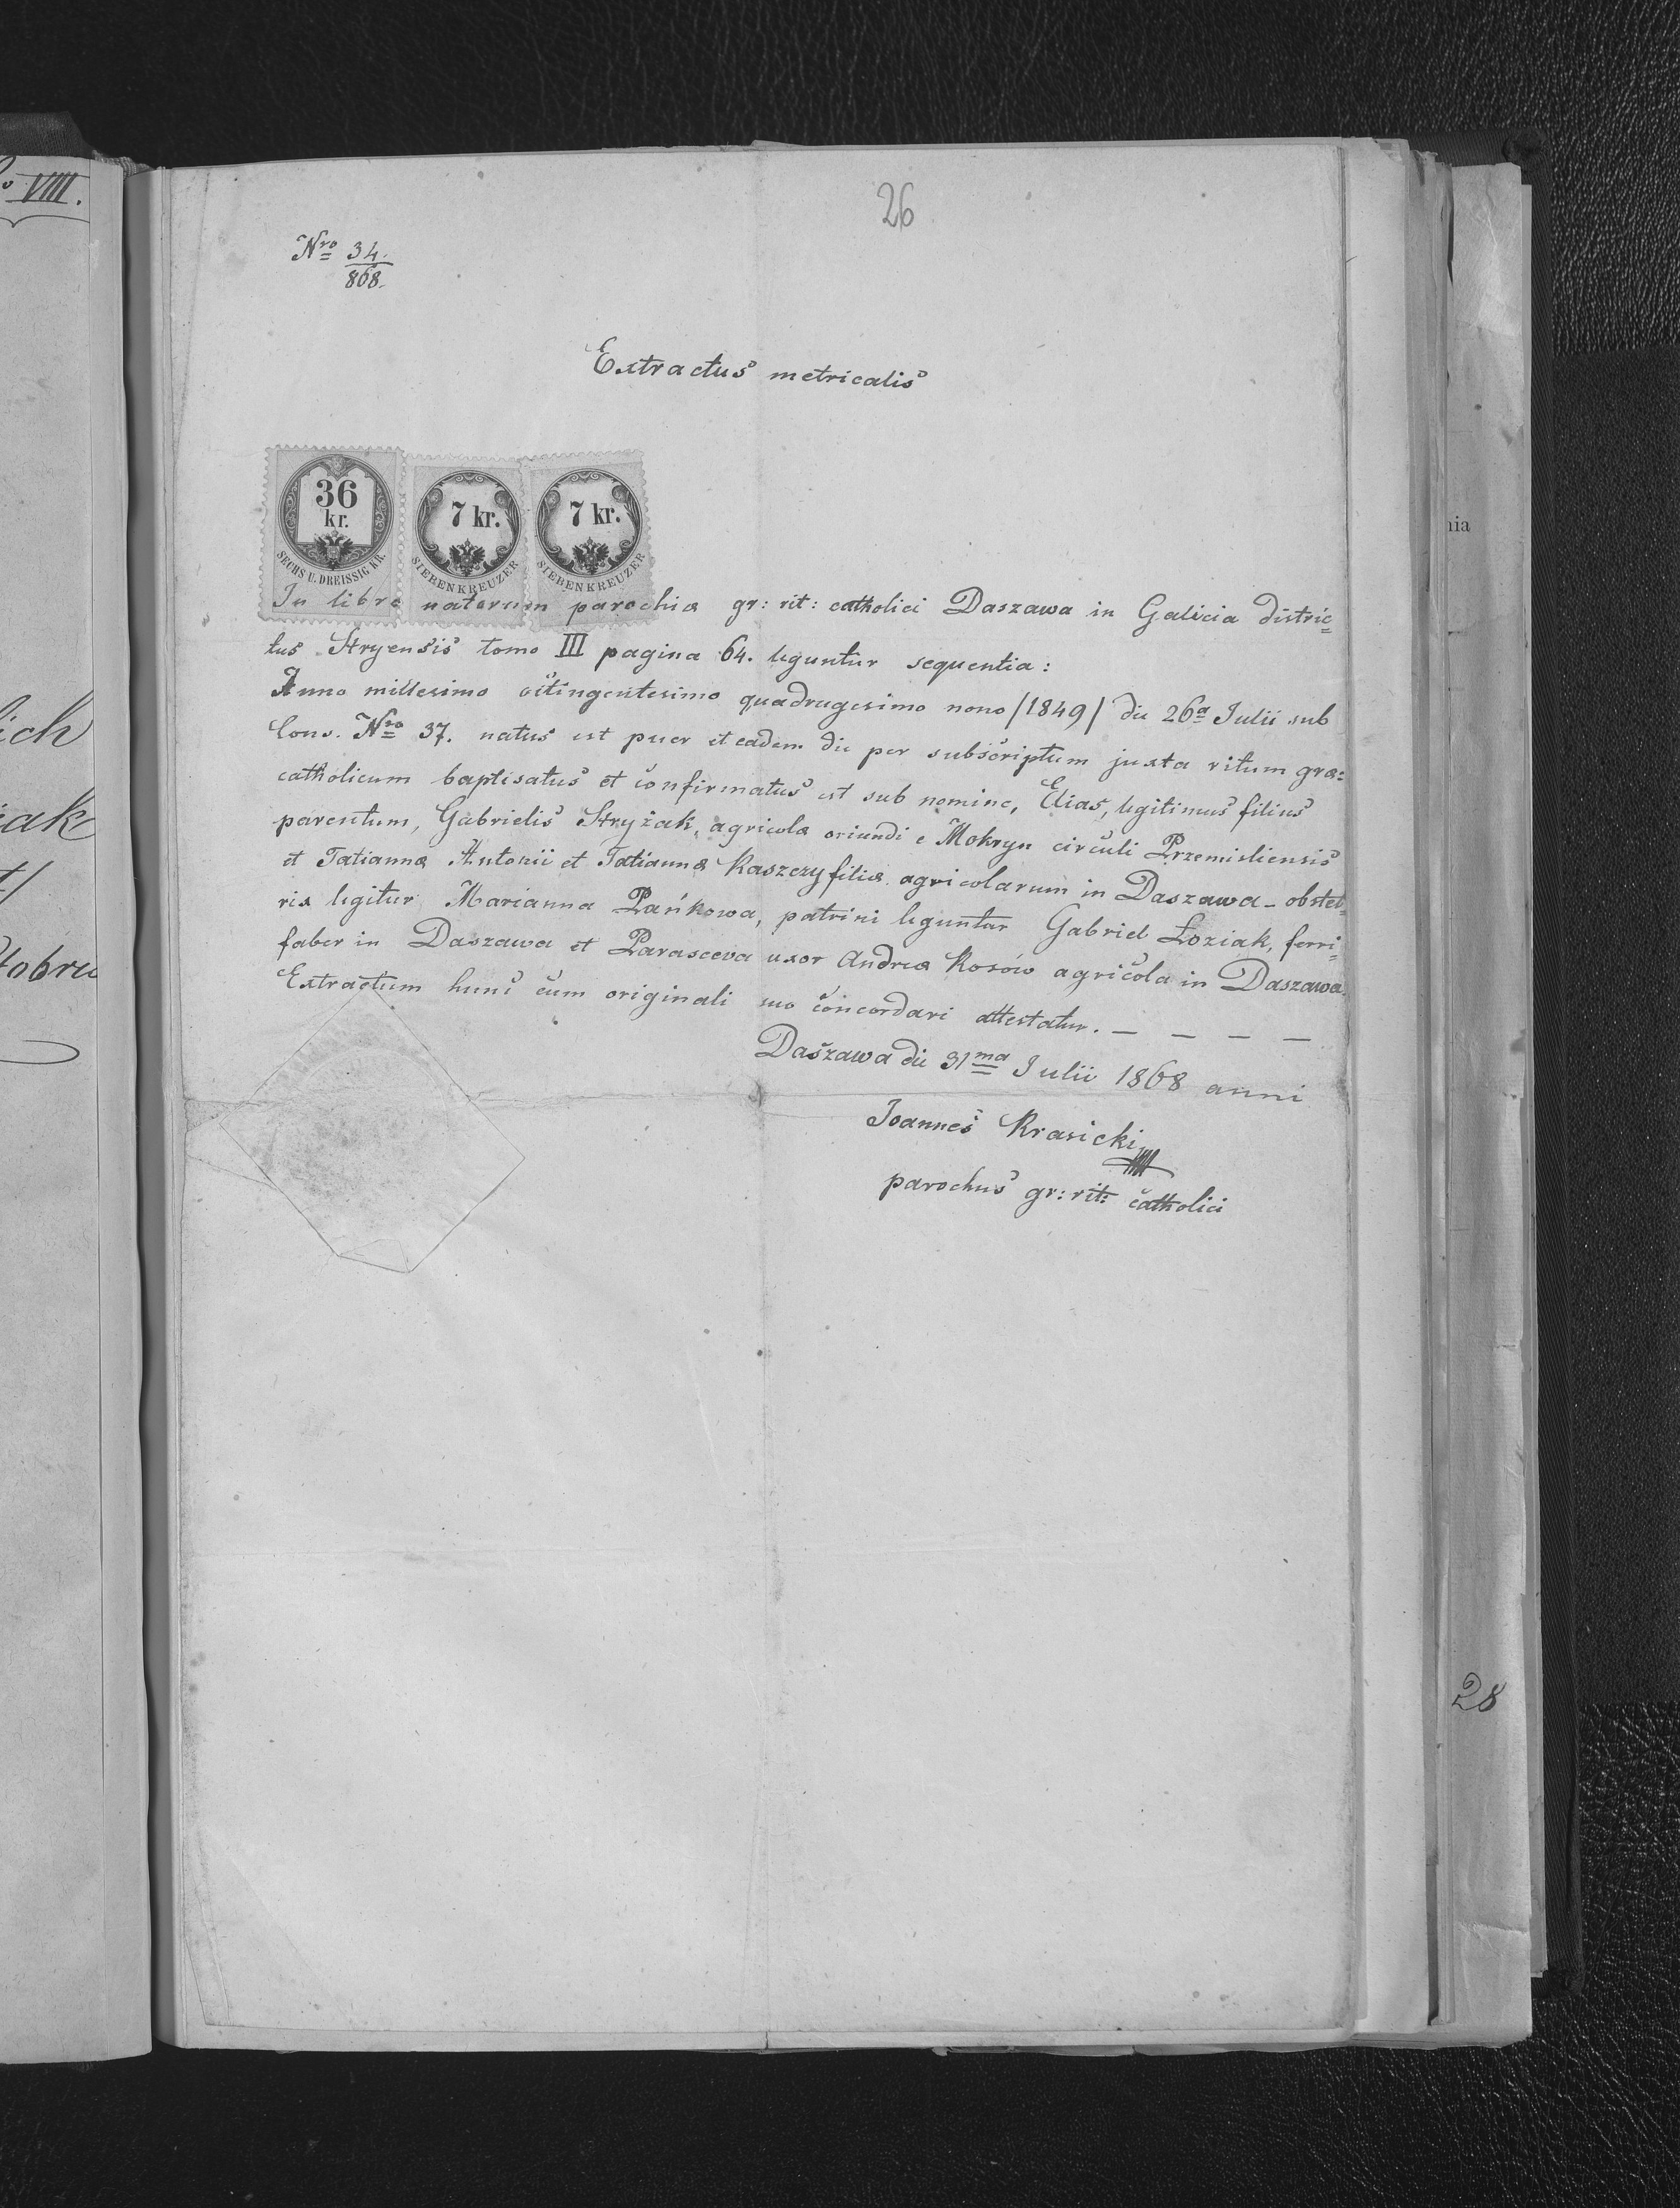 º VIII.
26
Nro 34.
868.
Extractus metricalis
36
kr.
SECHS U. DREISSIG KR.
7 kr.
SIEBENKREUZER
7 kr.
SIEBENKREUZER
In libro natorum parochiæ gr: rit: catholici Daszawa in Galicia distric=
tus Stryensis tomo III pagina 64. leguntur sequentia:
Anno millesimo octingentesimo quadragesimo nono /1849/ die 26a Julii sub
Cons. Nro 37. natus est puer et eadem die per subscriptum juxta ritum græ=
catholicum baptisatus et confirmatus est sub nomine, Elias, legitimus filius
parentum, Gabrielis Stryżak, agricolæ oriundi e Mokryn circuli Przemisliensis
et Tatiannæ Antonii et Tatiannæ Kaszczy filiæ agricolarum in Daszawa - obstet=
rix legitur Marianna Pańkowa, patrini leguntur Gabriel Loziak, ferri=
faber in Daszawa et Parasceva uxor Andreæ Kosów agricola in Daszawa.
Extractum hunc cum originali suo concordari attestatur. — — — —
Daszawa die 31ma Julii 1868 anni
Joannes Krasicki
parochus gr: rit: catholici
ich
iak
tobru
nia
28